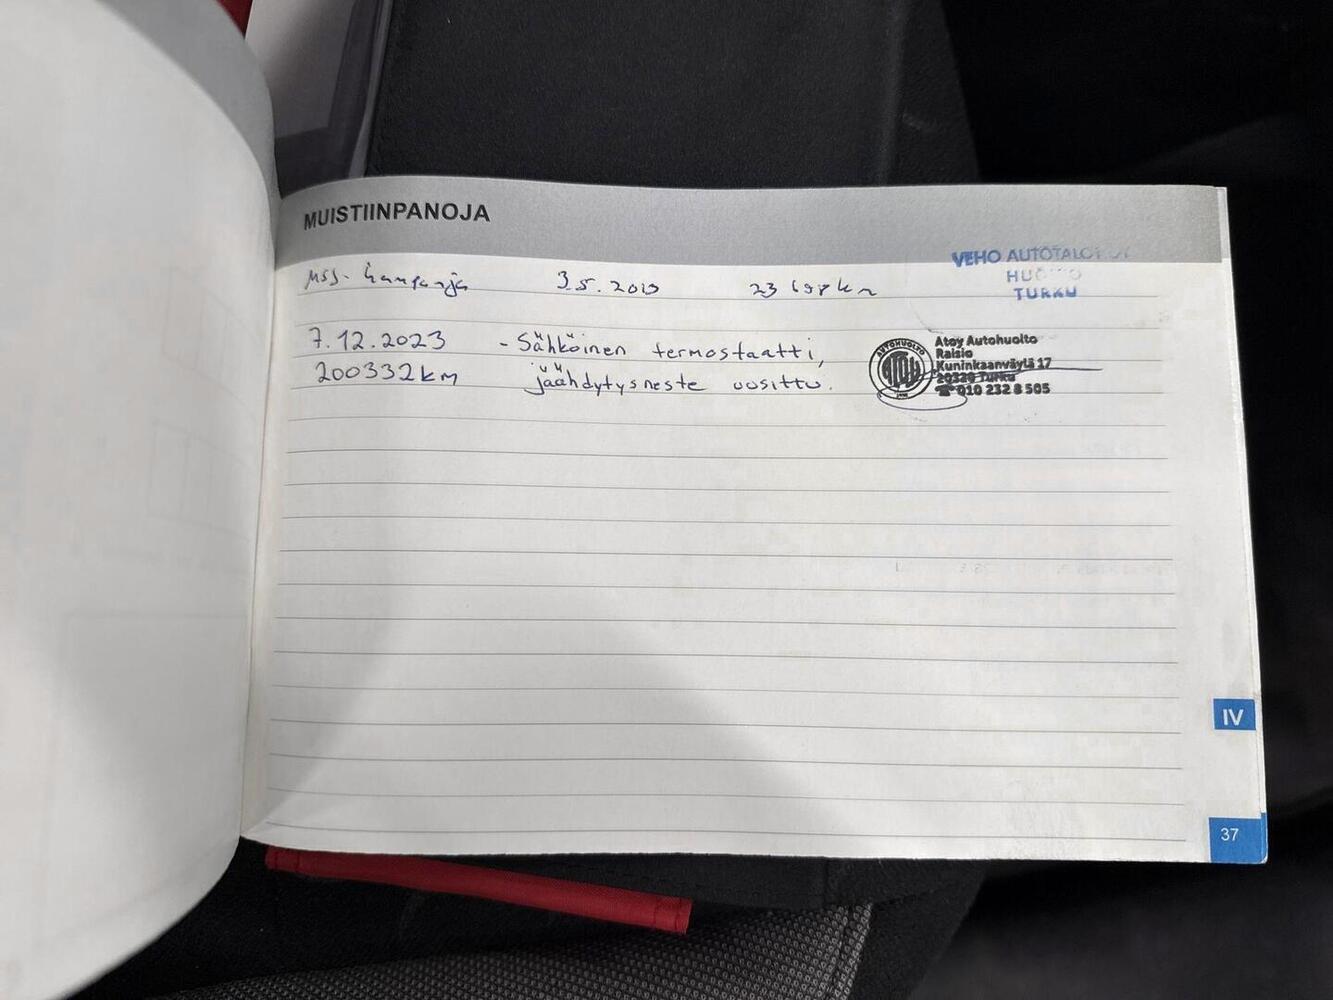 MUISTIINPANOJA
VEHO AUTOTALOT OY
HUOLTO
TURKU
kampanja 3.5.2013 23
7.12.2023 - Sähköinen termostaatti,
200332km jäähdytysneste uusittu.
AUTOHUOLTO
Atoy Autohuolto
Raisio
Kuninkaanväylä 17
20320 Turku
☎ 010 232 8 505
IV
37